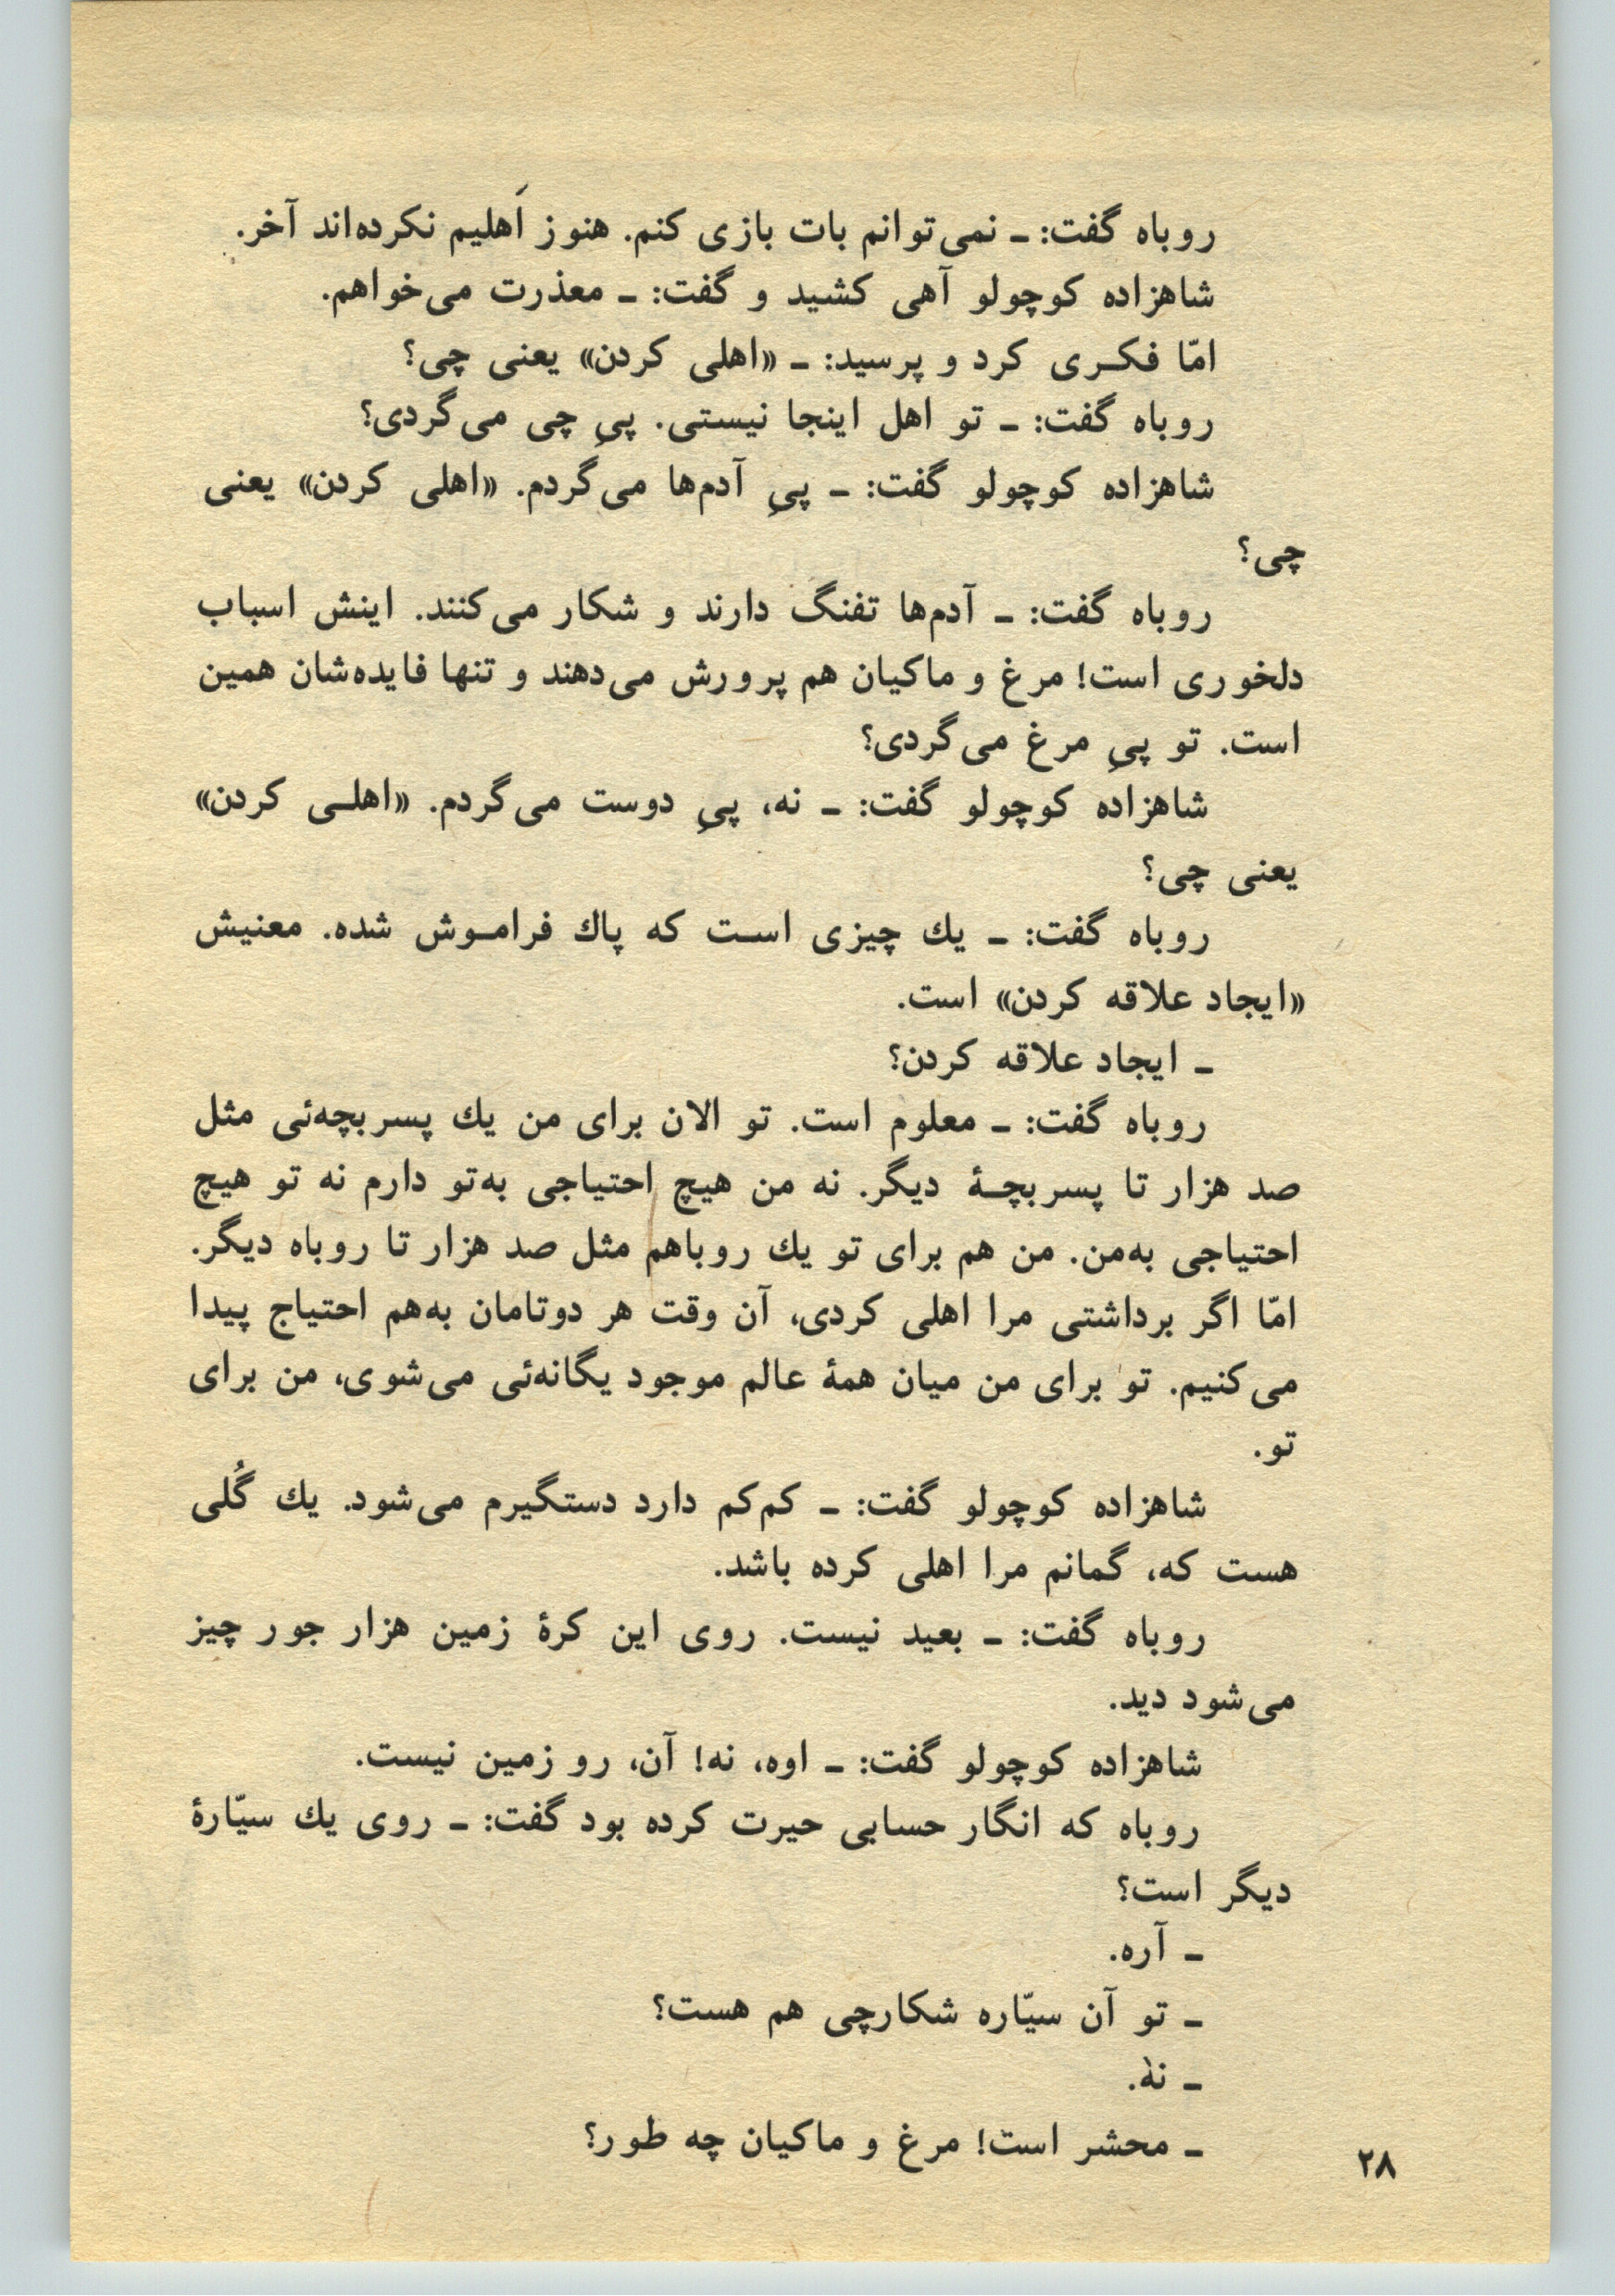 روباه گفت: ـ نمی‌توانم بات بازی کنم. هنوز اَهلیم نکرده‌اند آخر.
شاهزاده کوچولو آهی کشید و گفت: ـ معذرت می‌خواهم.
امّا فکری کرد و پرسید: ـ «اهلی کردن» یعنی چی؟
روباه گفت: ـ تو اهل اینجا نیستی. پیِ چی می‌گردی؟
شاهزاده کوچولو گفت: ـ پیِ آدم‌ها می‌گردم. «اهلی کردن» یعنی
چی؟
روباه گفت: ـ آدم‌ها تفنگ دارند و شکار می‌کنند. اینش اسباب
دلخوری است! مرغ و ماکیان هم پرورش می‌دهند و تنها فایده‌شان همین
است. تو پیِ مرغ می‌گردی؟
شاهزاده کوچولو گفت: ـ نه، پیِ دوست می‌گردم. «اهلی کردن»
یعنی چی؟
روباه گفت: ـ یك چیزی است که پاك فراموش شده. معنیش
«ایجاد علاقه کردن» است.
ـ ایجاد علاقه کردن؟
روباه گفت: ـ معلوم است. تو الان برای من یك پسربچه‌ئی مثل
صد هزار تا پسربچهٔ دیگر. نه من هیچ احتیاجی به‌تو دارم نه تو هیچ
احتیاجی به‌من. من هم برای تو یك روباهم مثل صد هزار تا روباه دیگر.
امّا اگر برداشتی مرا اهلی کردی، آن وقت هر دوتامان به‌هم احتیاج پیدا
می‌کنیم. تو برای من میان همهٔ عالم موجود یگانه‌ئی می‌شوی، من برای
تو.
شاهزاده کوچولو گفت: ـ کم‌کم دارد دستگیرم می‌شود. یك گُلی
هست که، گمانم مرا اهلی کرده باشد.
روباه گفت: ـ بعید نیست. روی این کرهٔ زمین هزار جور چیز
می‌شود دید.
شاهزاده کوچولو گفت: ـ اوه، نه! آن، رو زمین نیست.
روباه که انگار حسابی حیرت کرده بود گفت: ـ روی یك سیّارهٔ
دیگر است؟
ـ آره.
ـ تو آن سیّاره شکارچی هم هست؟
ـ نه.
ـ محشر است! مرغ و ماکیان چه طور؟
۲۸